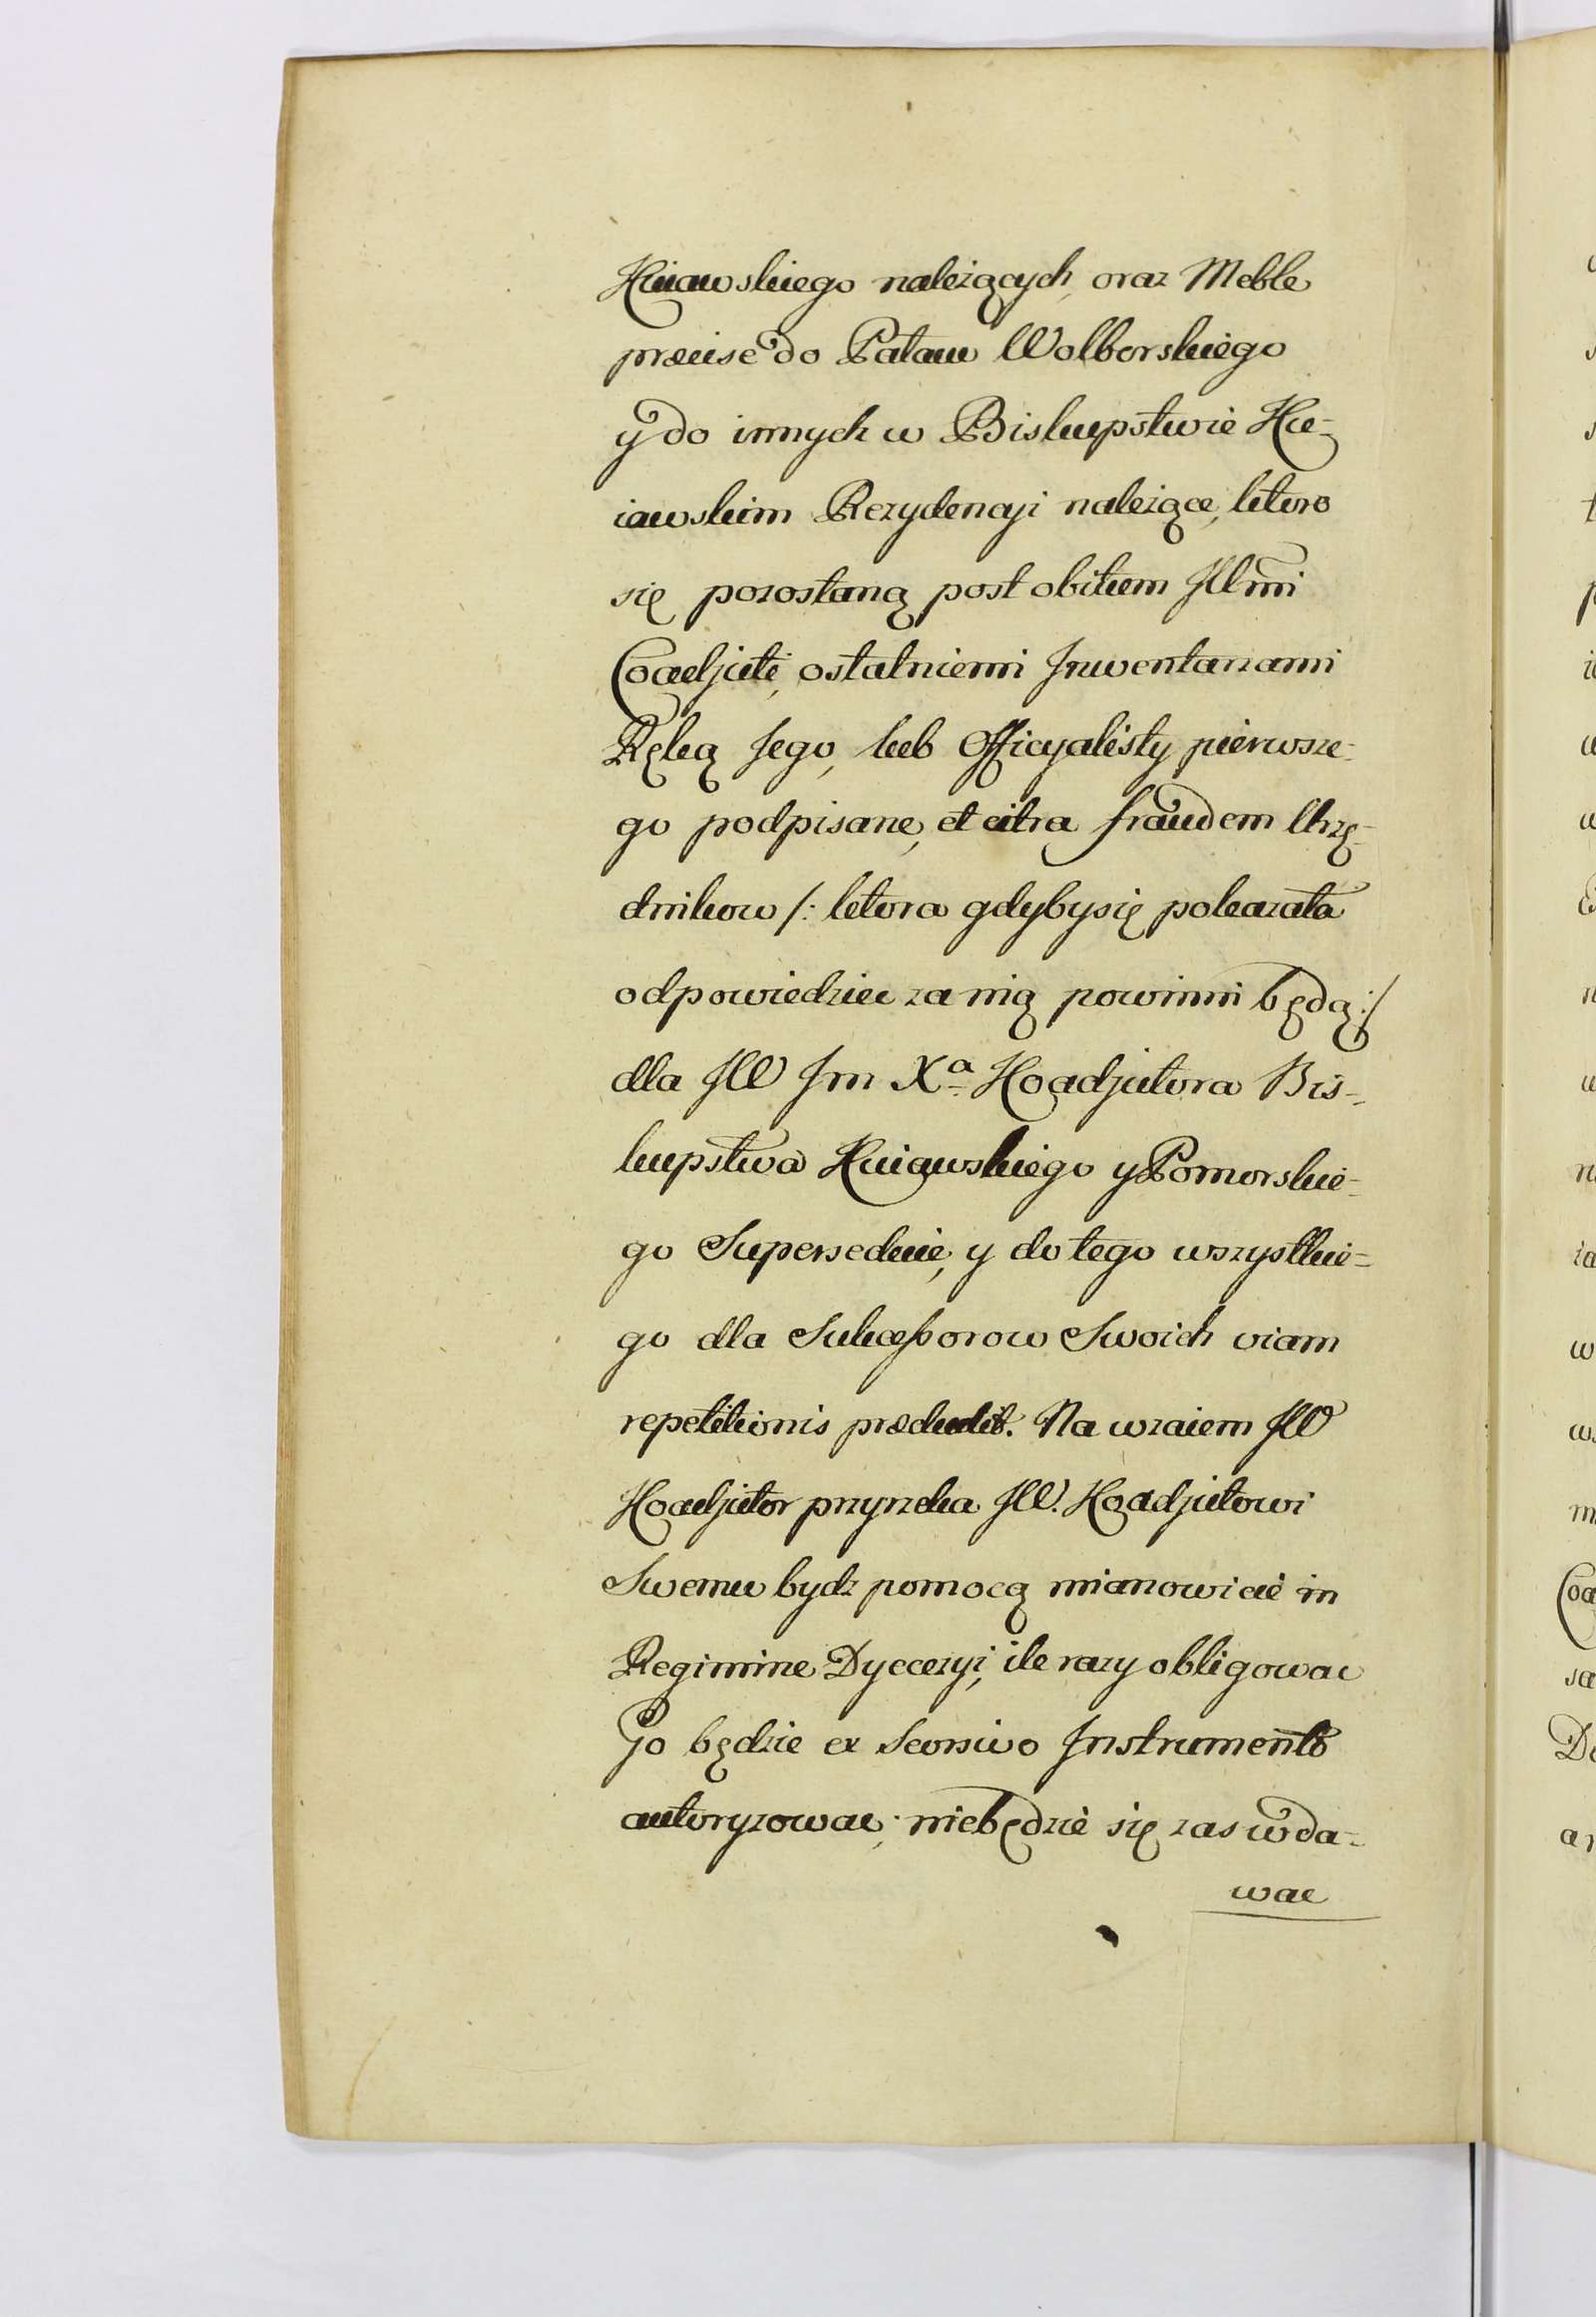 Kuiawskiego należących, oraz Meble
præcise do Pałacu Wolborskiego
y do innych w Biskupstwie Ku-
iawskim Rezydencyi należące, ktore
się pozostaną post obitum Illmi
Coadjuti, ostatniemi Inwentarzami
Ręką Jego, lub Officyalisty pierwsze-
go podpisane, et citra fraudem Urzę-
dnikow /: ktora gdyby się pokazała
odpowiedziec za nią powinni będą :/
dla JW Jm Xa Koadjutora Bis-
kupstwa Kuiawskiego y Pomorskie-
go Superseduie, y do tego wszystkie-
go dla Sukcessorow Swoich viam
repetitionis præcludit. Na wzaiem JW
Koadjutor przyrzeka JW. Koadjutowi
Swemu bydz pomocą mianowicie in
Regimine Dyecezyi, ile razy obligowac
Go będzie ex Seorsivo Instrumento
autoryzowac; niebędzie się zas wda-
wac